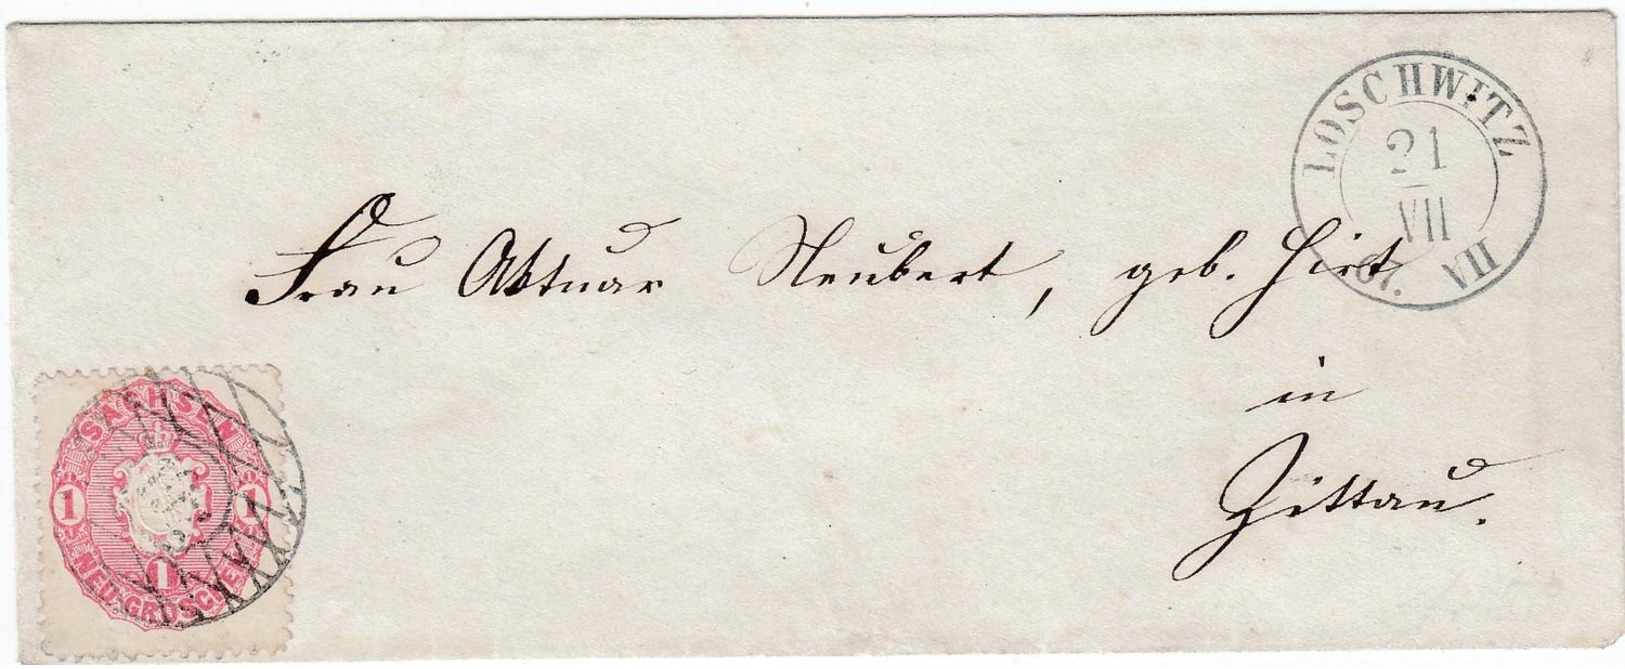 LOSCHWITZ
21
VII
67. VII
Frau Aktuar Neubert, geb. Hirt
in
Zittau.
SACHSEN
1 1
1
NEU-GROSCHEN